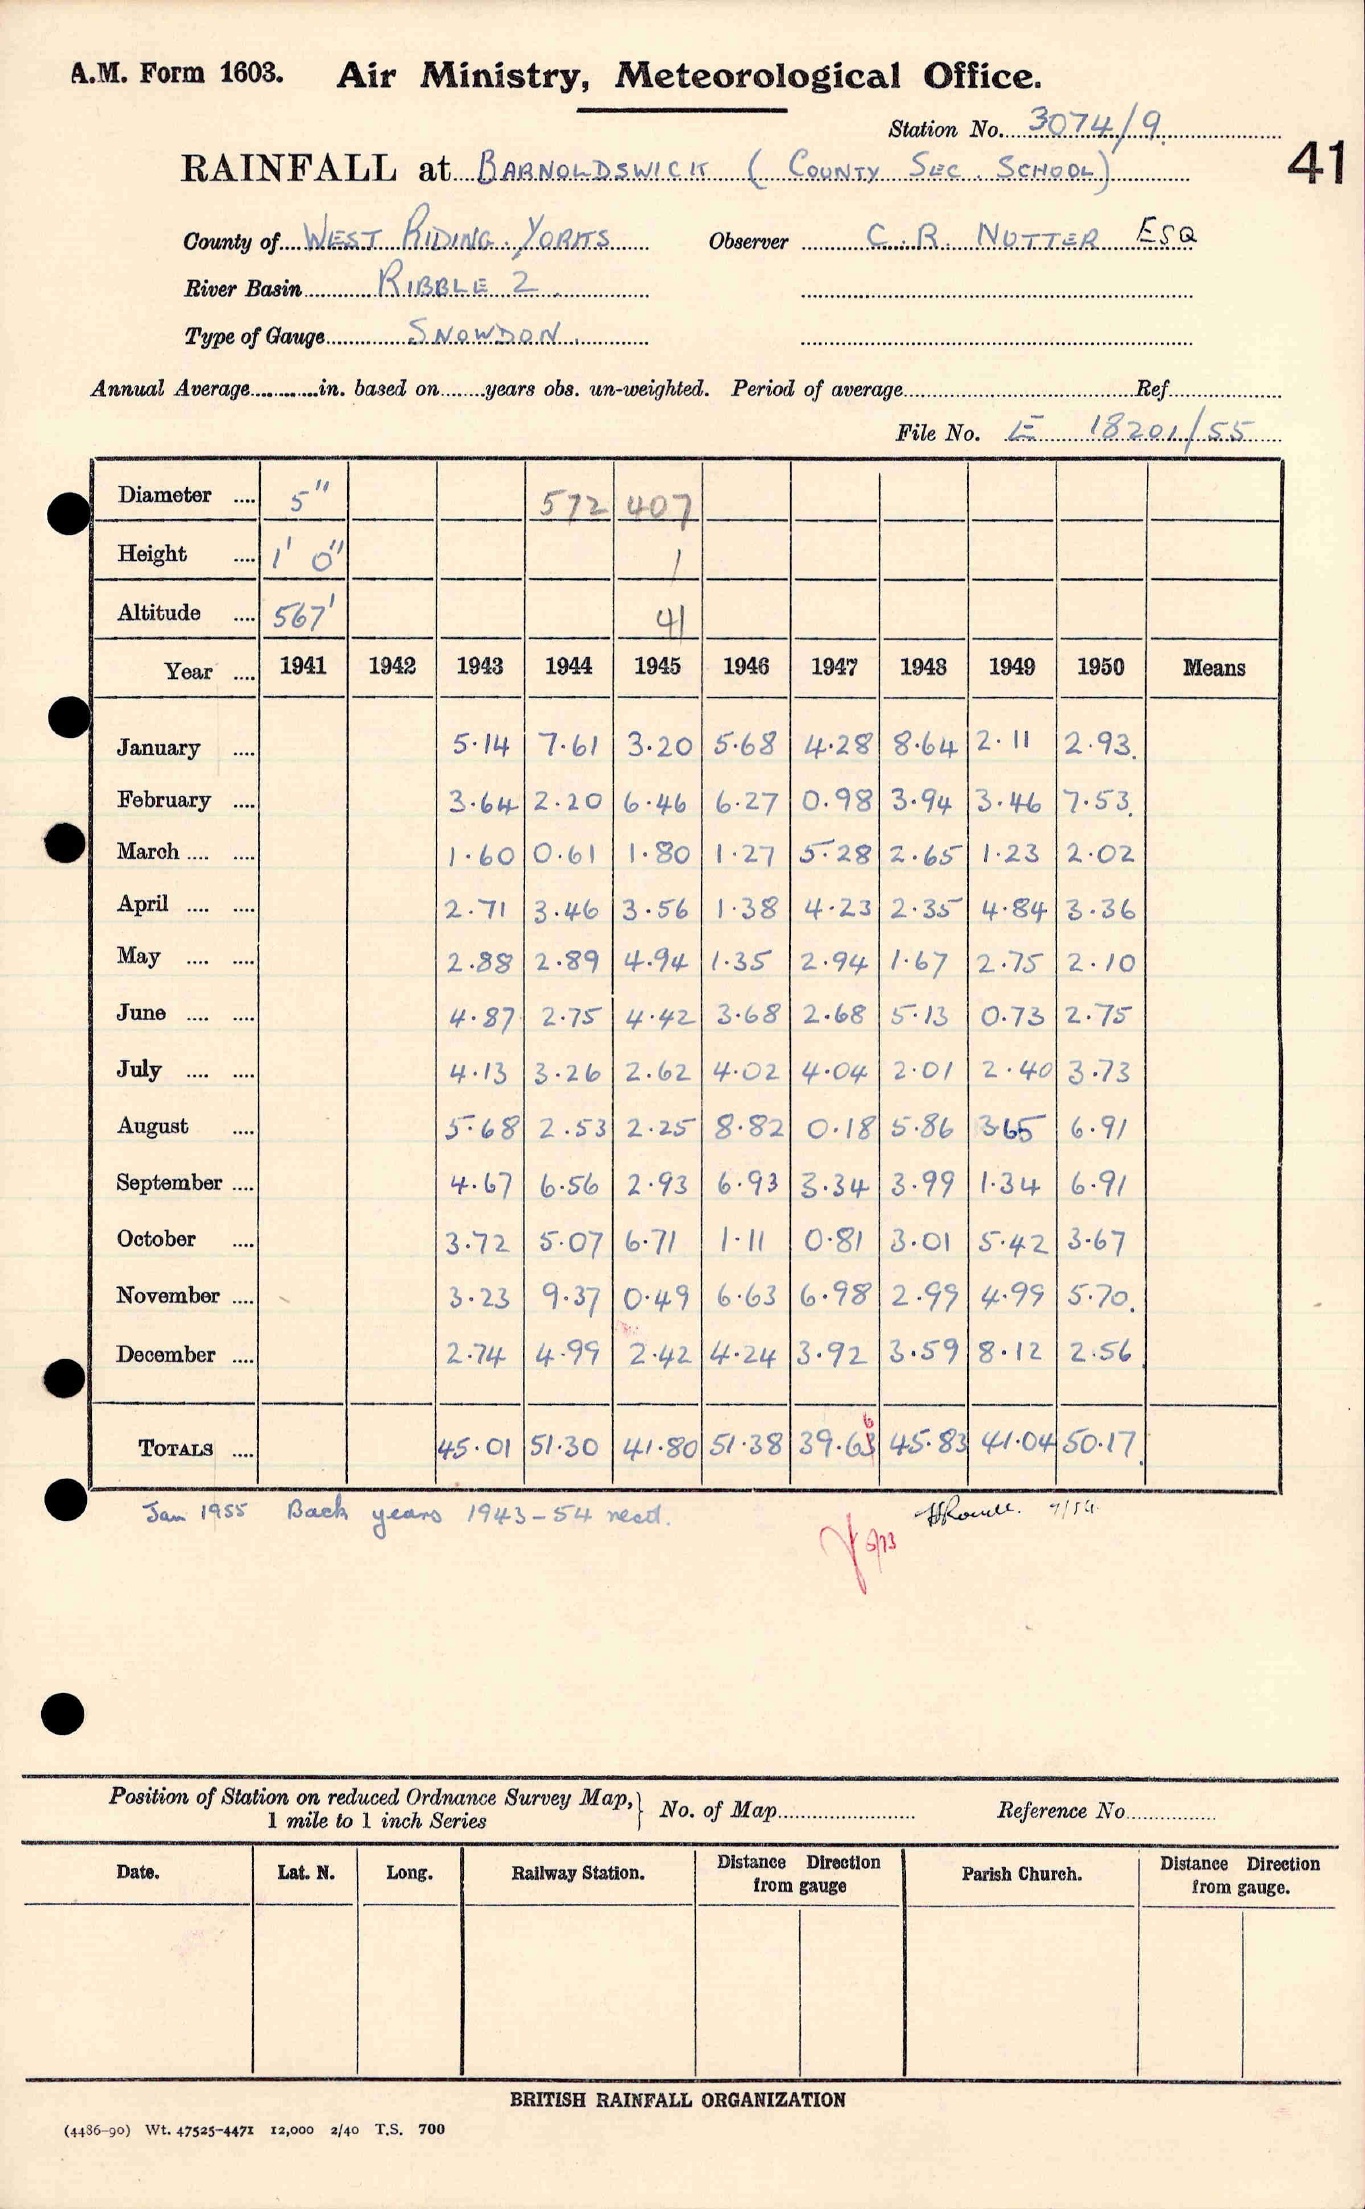 A.M. Form 1603. Air Ministry, Meteorological Office.
Station No. 3074/9.
41
RAINFALL at BARNOLDSWICK (COUNTY SEC. SCHOOL)
County of WEST RIDING. YORKS Observer C. R. NUTTER ESQ
River Basin RIBBLE 2.
Type of Gauge SNOWDON.
Annual Average............in. based on........years obs. un-weighted. Period of average........Ref........
File No. E 18201/55
Diameter .... 5" 572 407
Height .... 1' 0" 1
Altitude .... 567' 41
Year .... 1941 1942 1943 1944 1945 1946 1947 1948 1949 1950 Means
January .... 5.14 7.61 3.20 5.68 4.28 8.64 2.11 2.93.
February .... 3.64 2.20 6.46 6.27 0.98 3.94 3.46 7.53.
March .... .... 1.60 0.61 1.80 1.27 5.28 2.65 1.23 2.02
April .... .... 2.71 3.46 3.56 1.38 4.23 2.35 4.84 3.36
May .... .... 2.88 2.89 4.94 1.35 2.94 1.67 2.75 2.10
June .... .... 4.87 2.75 4.42 3.68 2.68 5.13 0.73 2.75
July .... .... 4.13 3.26 2.62 4.02 4.04 2.01 2.40 3.73
August .... 5.68 2.53 2.25 8.82 0.18 5.86 3.65 6.91
September .... 4.67 6.56 2.93 6.93 3.34 3.99 1.34 6.91
October .... 3.72 5.07 6.71 1.11 0.81 3.01 5.42 3.67
November .... 3.23 9.37 0.49 6.63 6.98 2.99 4.99 5.70.
December .... 2.74 4.99 2.42 4.24 3.92 3.59 8.12 2.56.
6
TOTALS .... 45.01 51.30 41.80 51.38 39.63 45.83 41.04 50.17.
Jan 1955 Back years 1943-54 recd.
Position of Station on reduced Ordnance Survey Map,} No. of Map........ Reference No........
1 mile to 1 inch Series
Date. Lat. N. Long. Railway Station. Distance Direction from gauge Parish Church. Distance Direction from gauge.
BRITISH RAINFALL ORGANIZATION
(4486-90) Wt. 47525-4471 12,000 2/40 T.S. 700